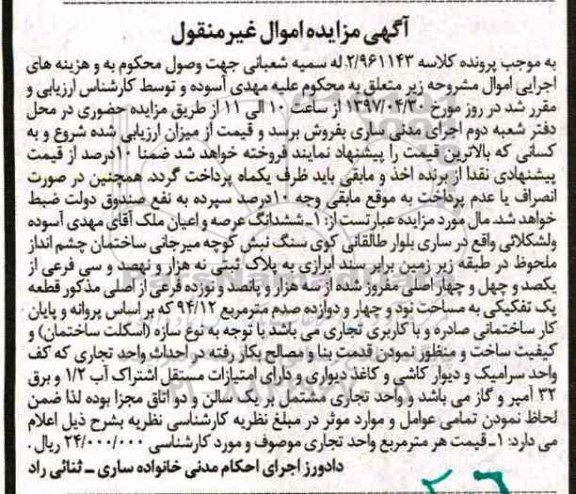 آگهی مزایده اموال غیر منقول
به موجب پرونده کلاسه ۲/۹۶۱۱۴۳ له سمیه شعبانی جهت وصول محکوم به و هزینه های
اجرایی اموال مشروحه زیر متعلق به محکوم علیه مهدی آسوده و توسط کارشناس ارزیابی و
مقرر شد در روز مورخ ۱۳۹۷/۰۴/۳۰ از ساعت ۱۰ الی ۱۱ از طریق مزایده حضوری در محل
دفتر شعبه دوم اجرای مدنی ساری بفروش برسد و قیمت از میزان ارزیابی شده شروع و به
کسانی که بالاترین قیمت را پیشنهاد نمایند فروخته خواهد شد ضمنا ۱۰درصد از قیمت
پیشنهادی نقدا از برنده اخذ و مابقی باید ظرف یکماه پرداخت گردد. همچنین در صورت
انصراف یا عدم پرداخت به موقع مابقی وجه ۱۰درصد سپرده به نفع صندوق دولت ضبط
خواهد شد. مال مورد مزایده عبارتست از: ۱_ششدانگ عرصه و اعیان ملک آقای مهدی آسوده
ولشکلائی واقع در ساری بلوار طالقانی کوی سنگ نبش کوچه میرجانی ساختمان چشم انداز
ملحوظ در طبقه زیر زمین برابر سند ابرازی به پلاک ثبتی نه هزار و نهصد و سی فرعی از
یکصد و چهل و چهار اصلی مفروز شده از سه هزار و پانصد و نوزده فرعی از اصلی مذکور قطعه
یک تفکیکی به مساحت نود و چهار و دوازده صدم مترمربع ۹۴/۱۲ که بر اساس پروانه و پایان
کار ساختمانی صادره و با کاربری تجاری می باشد با توجه به نوع سازه (اسکلت ساختمان) و
کیفیت ساخت و منظور نمودن قدمت بنا و مصالح بکار رفته در احداث واحد تجاری که کف
واحد سرامیک و دیوار کاشی و کاغذ دیواری و دارای امتیازات مستقل اشتراک آب ۱/۲ و برق
۳۲ آمپر و گاز می باشد و واحد تجاری مشتمل بر یک سالن و دو اتاق مجزا بوده لذا ضمن
لحاظ نمودن تمامی عوامل و موارد موثر در مبلغ نظریه کارشناسی نظریه بشرح ذیل اعلام
می دارد: ۱_قیمت هر مترمربع واحد تجاری موصوف و مورد کارشناسی ۲۴/۰۰۰/۰۰۰ ریال.
دادورز اجرای احکام مدنی خانواده ساری _ ثنائی راد